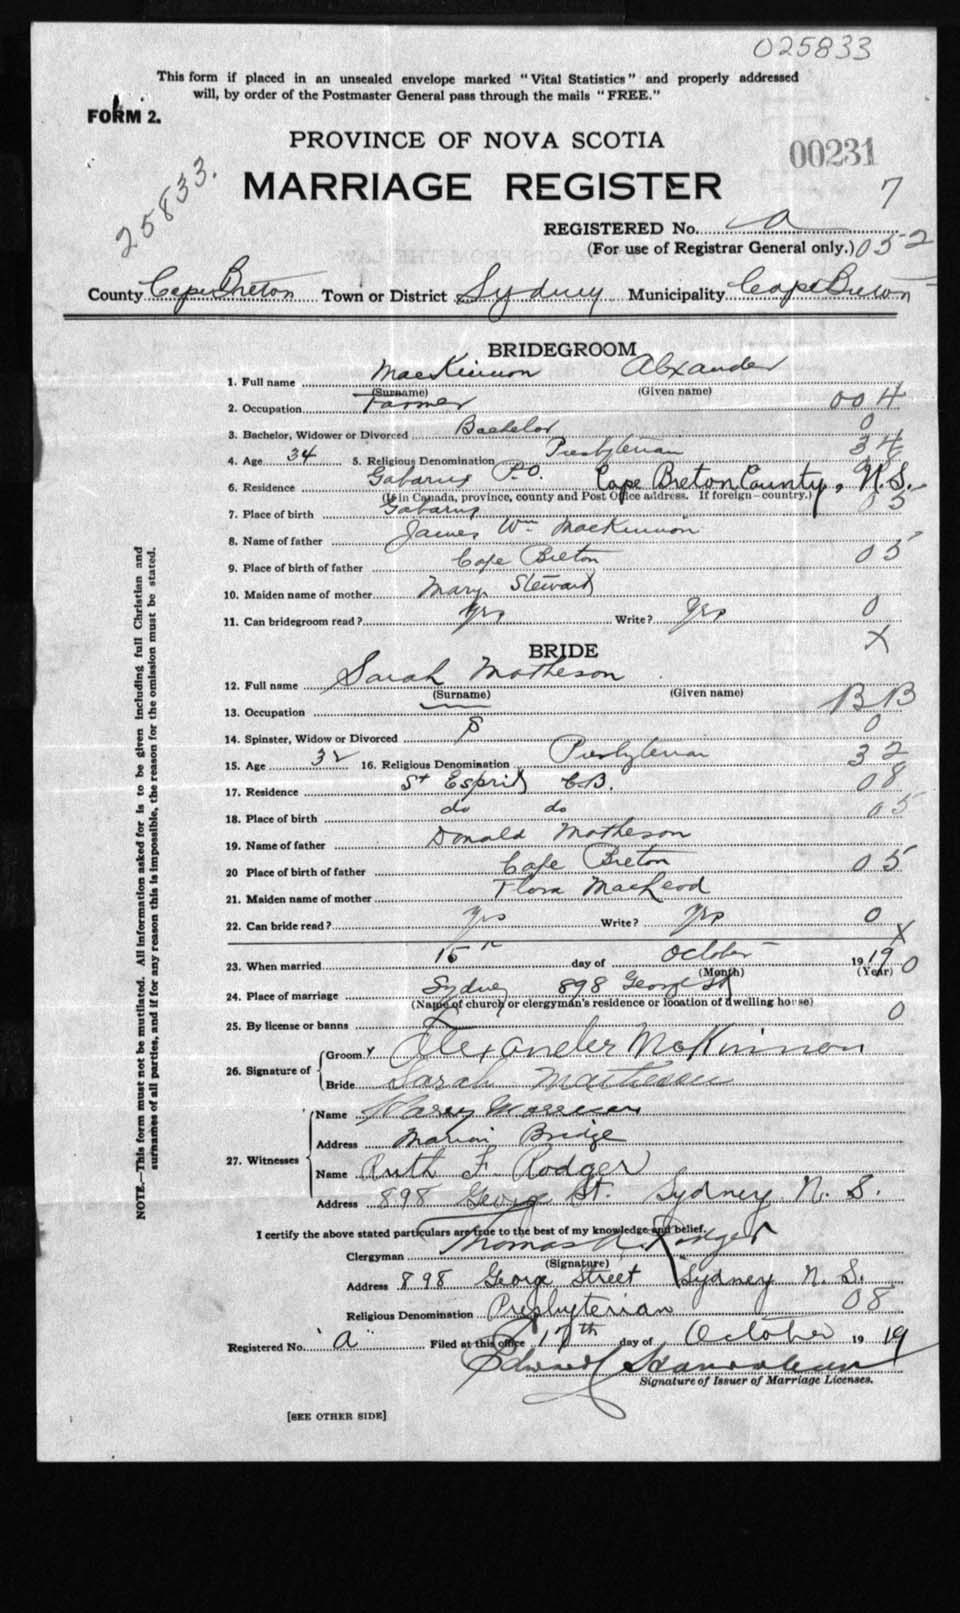 025833
This form if placed in an unsealed envelope marked "Vital Statistics" and properly addressed
will, by order of the Postmaster General pass through the mails "FREE."
FORM 2.
PROVINCE OF NOVA SCOTIA
00231
25833.
MARRIAGE REGISTER
7
REGISTERED No. a
(For use of Registrar General only.) 052
County Cape Breton Town or District Sydney Municipality Cape Breton
BRIDEGROOM
1. Full name MacKinnon Alxander
(Surname) (Given name)
2. Occupation Farmer 004
3. Bachelor, Widower or Divorced Bachelor 0
4. Age 34 5. Religious Denomination Presbyterian 34
6. Residence Gabarus P.O. Cape Breton County, N.S.
(If in Canada, province, county and Post Office address. If foreign—country.)
7. Place of birth Gabarus 05
8. Name of father James Wm MacKinnon
9. Place of birth of father Cape Breton 05
10. Maiden name of mother Mary Steward
11. Can bridegroom read? Yes Write? Yes 0
X
BRIDE
12. Full name Sarah Matheson
(Surname) (Given name)
13. Occupation BB
14. Spinster, Widow or Divorced S 0
15. Age 32 16. Religious Denomination Presbyterian 32
17. Residence St Esprit C.B. 08
18. Place of birth do do 05
19. Name of father Donald Matheson
20 Place of birth of father Cape Breton 05
21. Maiden name of mother Flora MacLeod
22. Can bride read? Yes Write? Yes 0
X
23. When married 15th day of October 1919 0
(Month) (Year)
24. Place of marriage Sydney 898 George St
(Name of church or clergyman's residence or location of dwelling house)
25. By license or banns 0
26. Signature of Groom Alexander McKinnon
Bride Sarah Matheson
27. Witnesses Name
Address Marion Bridge
Name Ruth F. Rodger
Address 898 George St. Sydney N. S.
I certify the above stated particulars are true to the best of my knowledge and belief.
Clergyman Thomas Rodger
(Signature)
Address 898 George Street Sydney N. S.
Religious Denomination Presbyterian 08
Registered No. "A" Filed at this office 17th day of October 1919
Edward
Signature of Issuer of Marriage Licenses.
[SEE OTHER SIDE]
NOTE.—This form must not be mutilated. All information asked for is to be given including full Christian and
surnames of all parties, and if for any reason this is impossible, the reason for the omission must be stated.